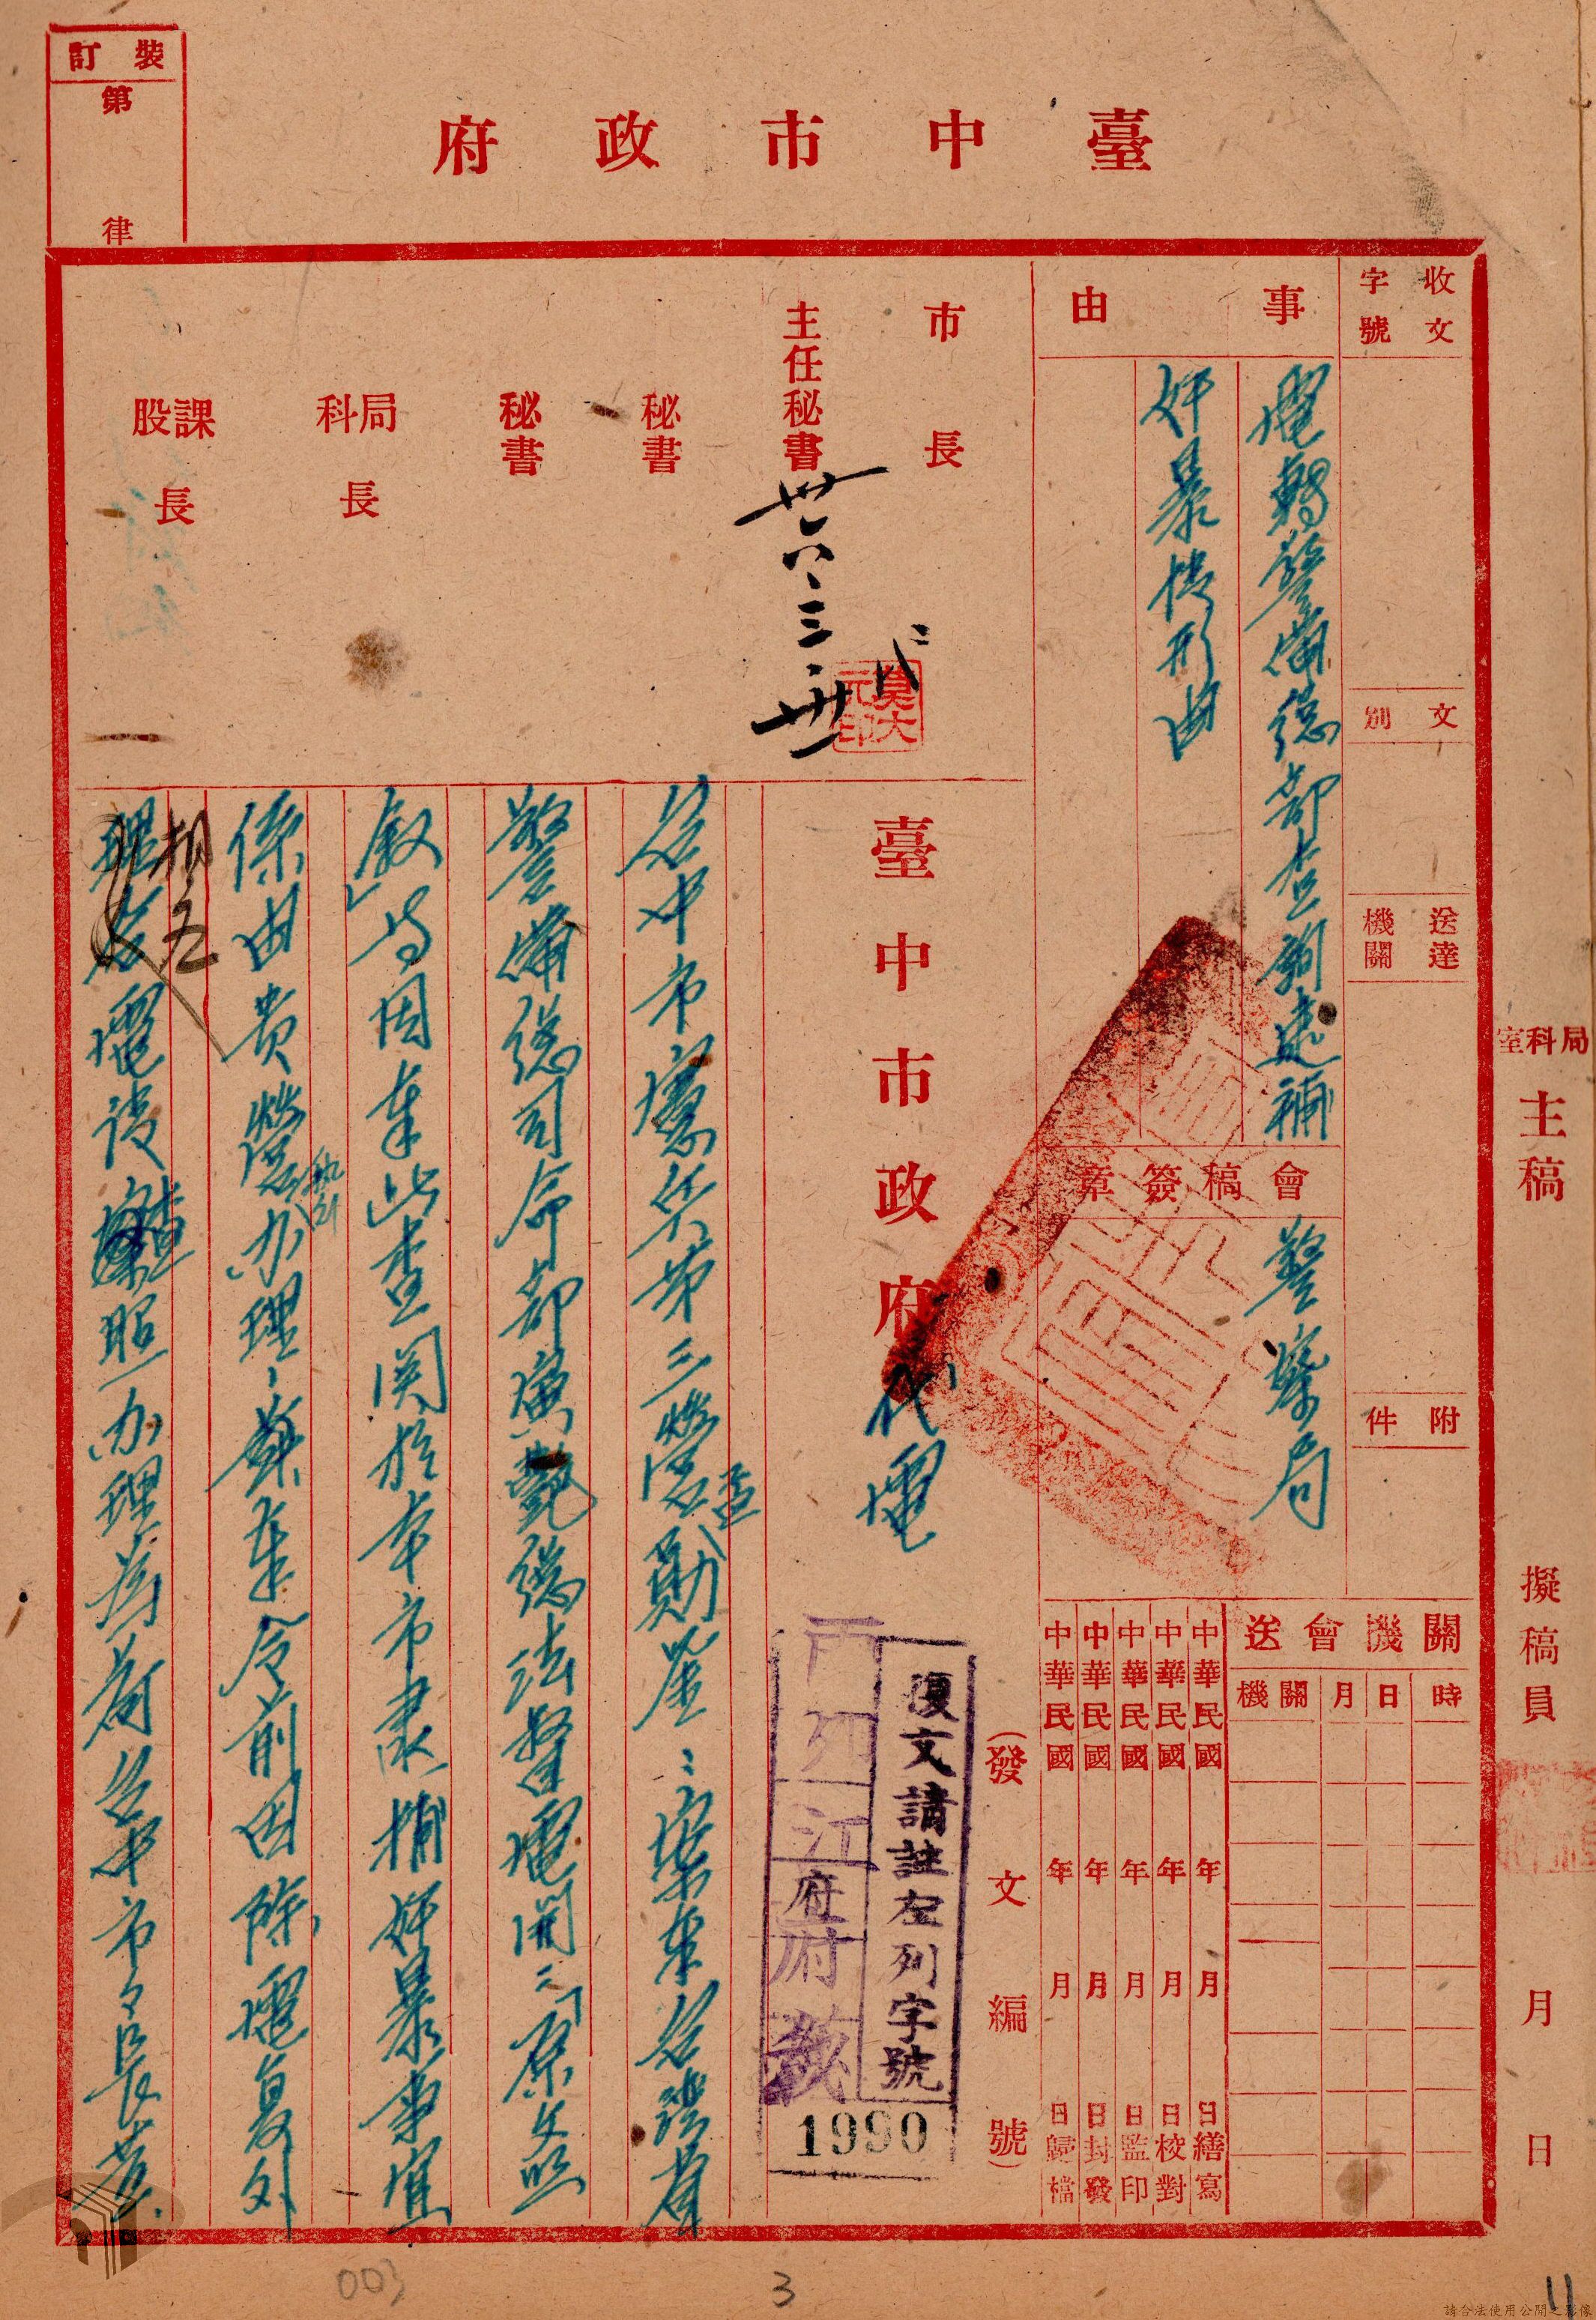 裝訂
第
律
臺中市政府
收文
字號
文別
送達機關
附件
事由
電轉警備總部查詢逮補
奸暴情形由
會稿簽章
警察局
送會機關
機關
月
日
時
中華民國 年 月 日繕寫
中華民國 年 月 日校對
中華民國 年 月 日監印
中華民國 年 月 日封發
中華民國 年 月 日歸檔
(發文編號)
市長
代
主任秘書
卅六、三、卅一
秘書
秘書
局科長
課股長
臺中市政府代電
復文請註左列字號
府
1990
台中市憲兵第三營
案奉台灣省
警備總司令部
電開：「原文照
敘」等因奉此查關於本市肅捕奸暴事宜
係由貴營
执行
办理、茲奉令前因除電复外
相应
理合電請
查照办理為荷台中市市長黃
局科室
主稿
擬稿員
月
日
003
3
11
請合法使用公開之影像